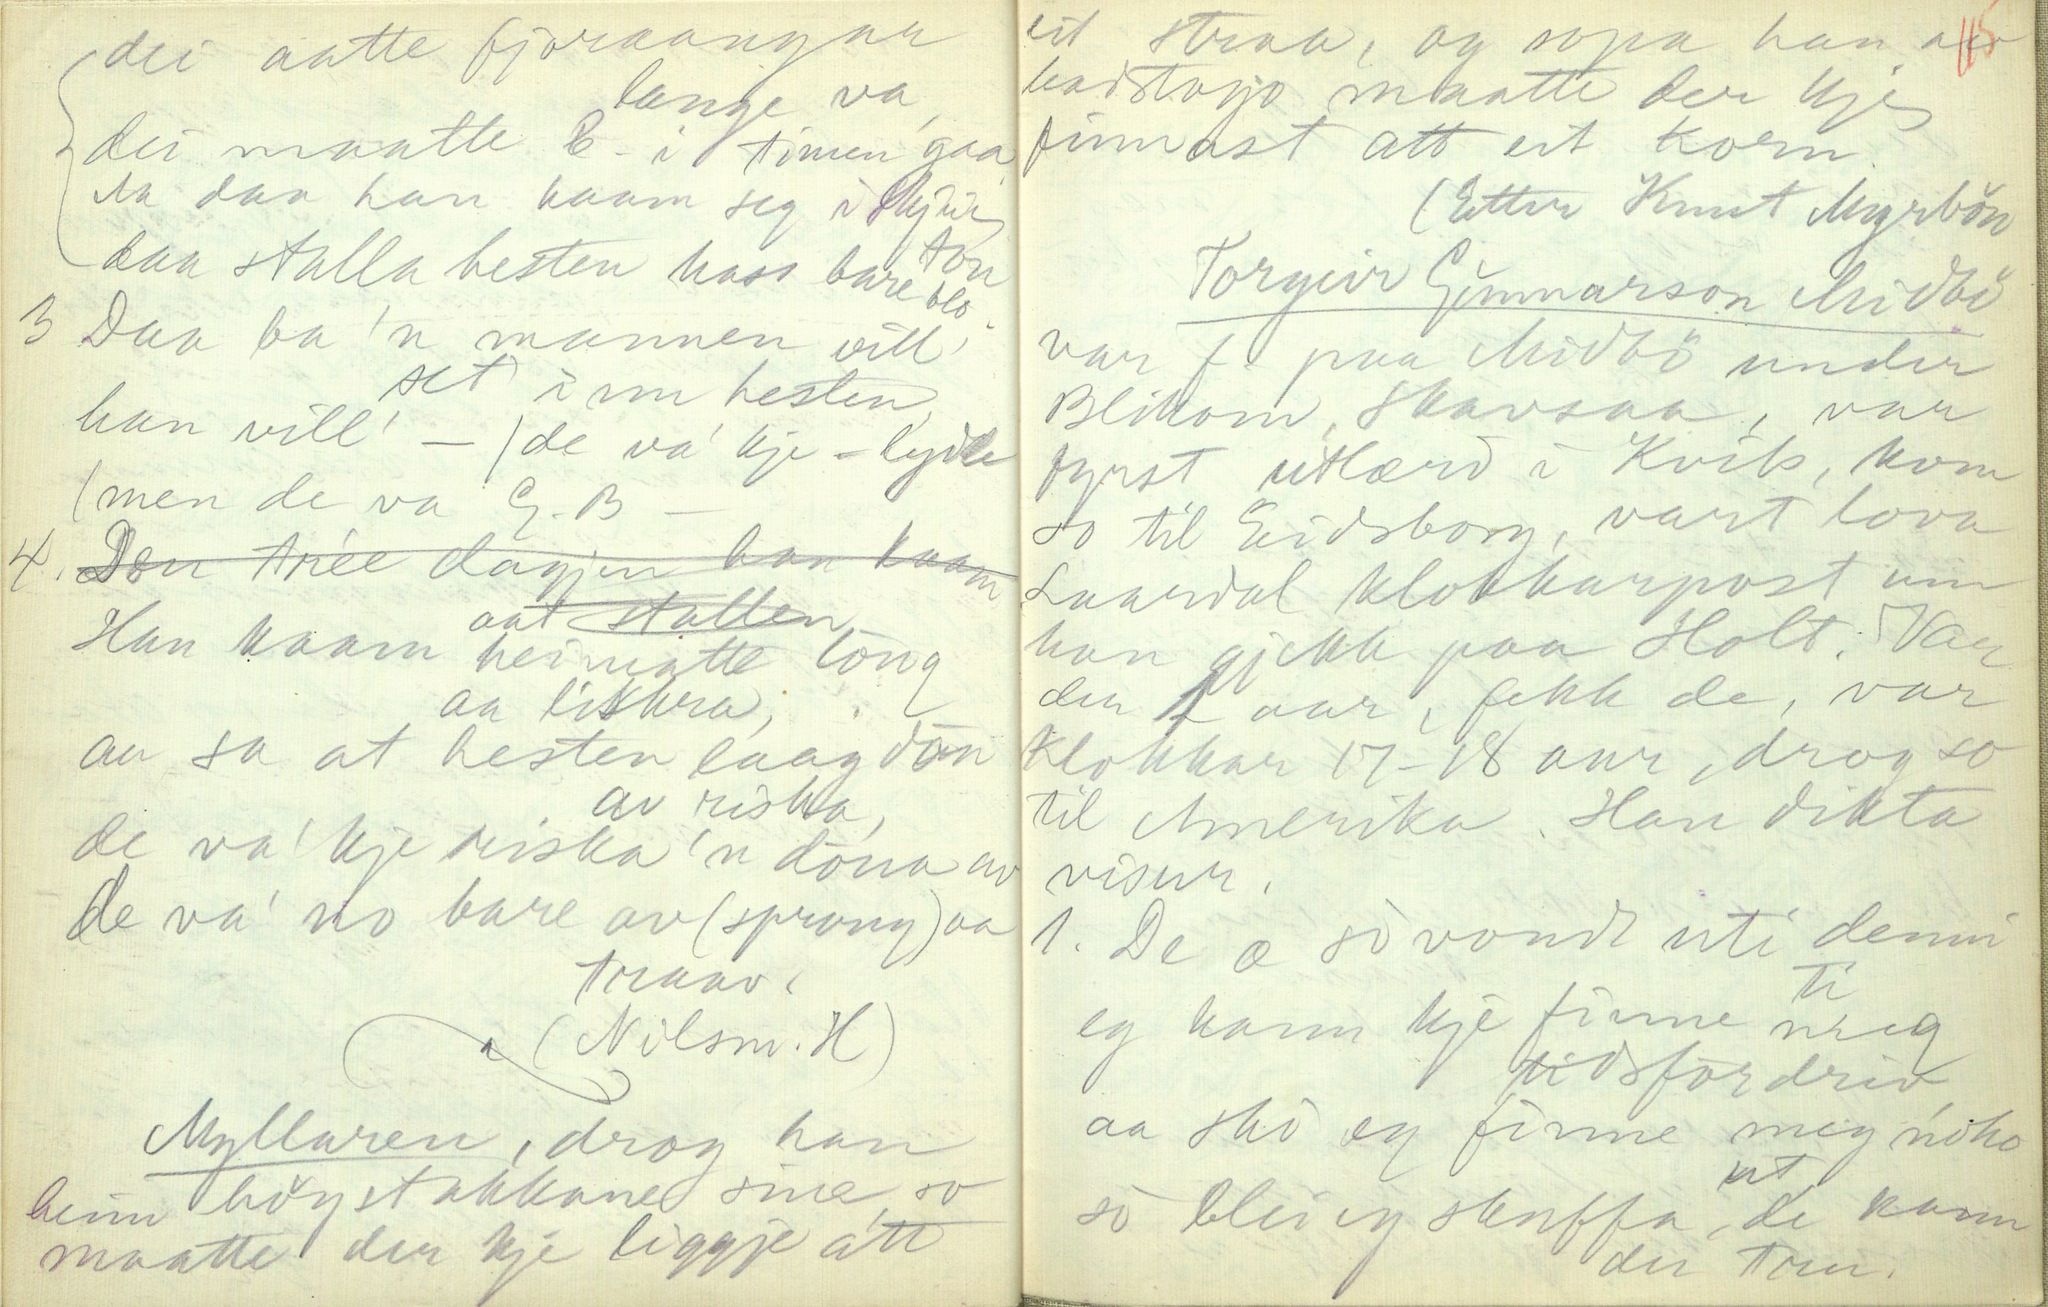 dei aatte fjoraangar
lange va,
dei maatte 2 i timen gaa,
Aa daa han kaam seg i
daa stalla hesten hass bare ton
blo.
3 Daa ba'n mannen vill'
set inn hesten,
han vill' – (de va' kje – lydde
(men de va G. B –
4. Den trée dagjen han kaam
aat stallen
Han kaam heimatte tong
aa likhra,
aa sa at hesten laag dön
av riska,
de va' kje riska 'n döna av
de va' no bare av (sprong) aa
traav.
(Nilsm. H)
Myllaren, drog han
heim höystakkane sine, so
maatte der kje liggje att
115
eit straa, og sopa han av
hadstogjo maatte der kje
finnast att eit korn.
(Etter Knut Myrbön
Torgeir Gunnarson Midbö
var f. paa Midbö under
Blikom, Skavsaa, var
fyrst utlærd i Kvits, kom
so til Eidsborg, vart lova
Laardal klokkarpost um
han gjekk paa Holt. Var
der 2 aar, fekk de, var
Klokkar 17–18 aar, drog so
til Amerika. Han dikta
visur.
1. De æ so vondt uti denni
ti
eg kann kje finne meg
tidsfordriv
aa sko eg finne meg noko
ut
so blei eg skuffa, de kann
der tru.